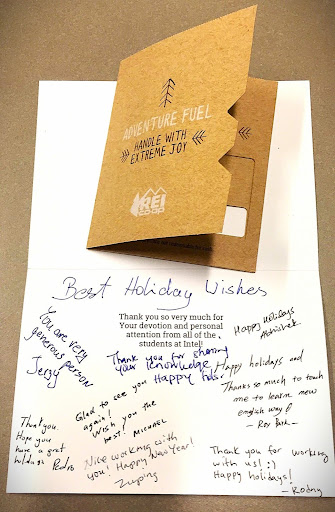 ADVENTURE FUEL
HANDLE WITH
EXTREME JOY
REI
co-op
Best Holiday Wishes
Thank you so very much for
Your devotion and personal
attention from all of the
students at Intel!
You are very
generous person
Jerzy
Thank you for sharing
your knowledge
Happy hds.
Happy Holidays
Abhishek
Happy holidays and
Thanks so much to teach
me to learn new
english way!
- Roy Park -
Glad to see you
again!
Wish you the
best! MICHAEL
Thank you.
Hope you
have a gret
holidays Pedro
Nice working with
you! Happy New Year!
Zuping
Thank you for working
with us! :)
Happy holidays!
- Rodny